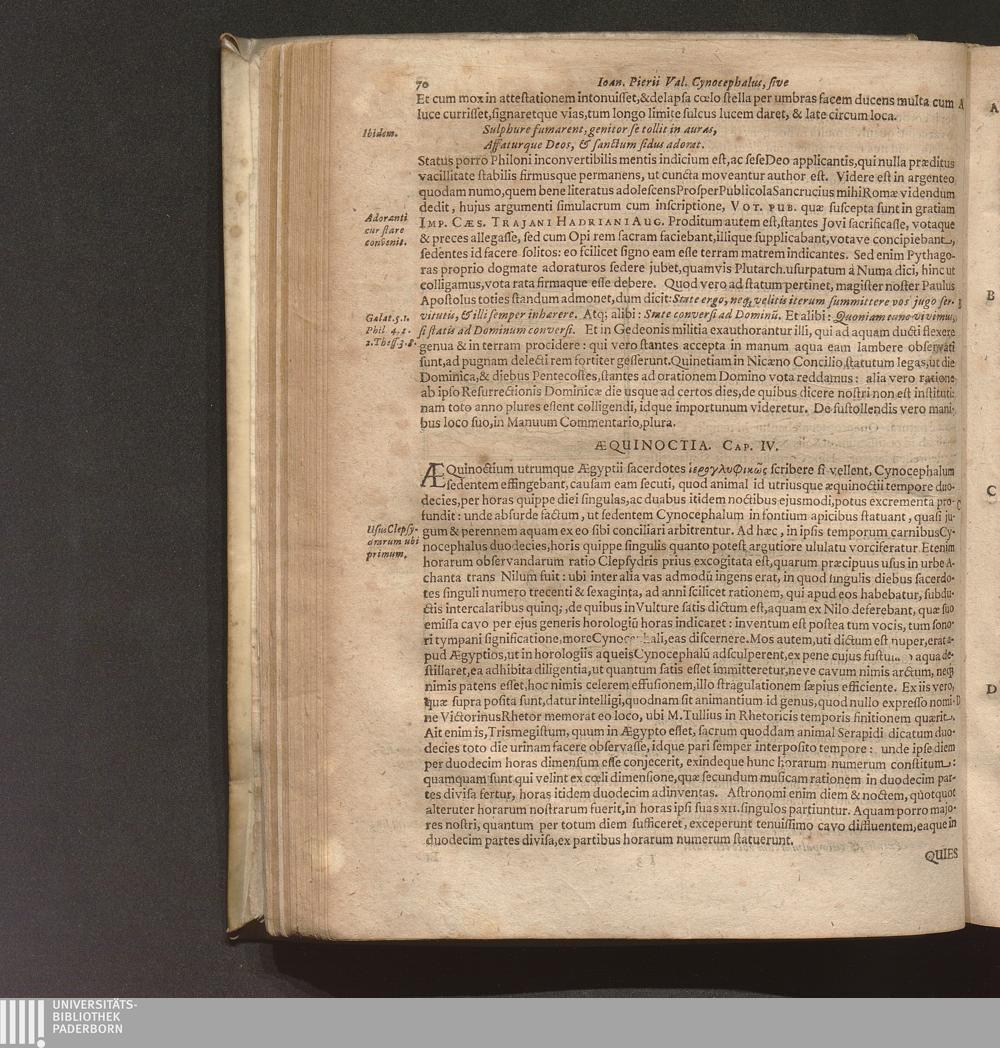 70 Ioan. Pierii Val. Cynocephalus, ſive
Et cum mox in atteſtationem intonuiſſet,&delapſa cœlo ſtella per umbras facem ducens multa cum A
luce curriſſet,ſignaretque vias,tum longo limite ſulcus lucem daret, & late circum loca.
Ibidem. Sulphure fumarent, genitor ſe tollit in auras,
Affaturque Deos, & ſanctum ſidus adorat.
Status porro Philoni inconvertibilis mentis indicium eſt,ac ſeſeDeo applicantis,qui nulla præditus
vacillitate ſtabilis firmusque permanens, ut cuncta moveantur author eſt. Videre eſt in argenteo
quodam numo,quem bene literatus adoleſcensProſperPublicolaSancrucius mihiRomæ videndum
dedit, hujus argumenti ſimulacrum cum inſcriptione, VOT. PUB. quæ ſuſcepta ſunt in gratiam
Adoranti
cur ſtare
convenit.
IMP. CÆS. TRAJANI HADRIANI AUG. Proditum autem eſt,ſtantes Jovi ſacrificaſſe, votaque
& preces allegaſſe, ſed cum Opi rem ſacram faciebant,illique ſupplicabant,votave concipiebant,
ſedentes id facere ſolitos: eo ſcilicet ſigno eam eſſe terram matrem indicantes. Sed enim Pythago-
ras proprio dogmate adoraturos ſedere jubet,quamvis Plutarch.uſurpatum á Numa dici, hinc ut
colligamus,vota rata firmaque eſſe debere. Quod vero ad ſtatum pertinet, magiſter noſter Paulus
Apoſtolus toties ſtandum admonet,dum dicit:State ergo, neq; velitis iterum ſummittere vos jugo ſer-
Galat.5.1.
Phil. 4.1.
2.Theſſ.3.8.
vitutis, & illi ſemper inhærere. Atq; alibi: State converſi ad Dominū. Et alibi: Quoniam tunc vivimus,
ſi ſtatis ad Dominum converſi. Et in Gedeonis militia exauthorantur illi, qui ad aquam ducti flexere
genua & in terram procidere: qui vero ſtantes accepta in manum aqua eam lambere obſervati
ſunt,ad pugnam delecti rem fortiter geſſerunt.Quinetiam in Nicæno Concilio ſtatutum legas,ut die
Dominica,& diebus Pentecoſtes,ſtantes ad orationem Domino vota reddamus: alia vero ratione
ab ipſo Reſurrectionis Dominicæ die usque ad certos dies,de quibus dicere noſtri non eſt inſtituti:
nam toto anno plures eſſent colligendi, idque importunum videretur. De ſuſtollendis vero mani-
bus loco ſuo,in Manuum Commentario,plura.
ÆQUINOCTIA. CAP. IV.
ÆQuinoctium utrumque Ægyptii ſacerdotes ἱερογλυφικῶς ſcribere ſi vellent, Cynocephalum
ſedentem effingebant, cauſam eam ſecuti, quod animal id utriusque æquinoctii tempore duo-
decies,per horas quippe diei ſingulas,ac duabus itidem noctibus ejusmodi,potus excrementa pro- C
fundit: unde abſurde factum, ut ſedentem Cynocephalum in fontium apicibus ſtatuant, quaſi ju-
Uſus Clepſy-
drarum ubi
primum.
gum & perennem aquam ex eo ſibi conciliari arbitrentur. Ad hæc, in ipſis temporum carnibusCy-
nocephalus duodecies,horis quippe ſingulis quanto poteſt argutiore ululatu vorciferatur Etenim
horarum obſervandarum ratio Clepſydris prius excogitata eſt,quarum præcipuus uſus in urbe A-
chanta trans Nilum fuit: ubi inter alia vas admodū ingens erat, in quod ſingulis diebus ſacerdo-
tes ſinguli numero trecenti & ſexaginta, ad anni ſcilicet rationem, qui apud eos habebatur, ſubdu-
ctis intercalaribus quinq;,de quibus in Vulture ſatis dictum eſt,aquam ex Nilo deferebant, quæ ſuo
emiſſa cavo per ejus generis horologiū horas indicaret: inventum eſt poſtea tum vocis, tum ſono-
ri tympani ſignificatione,more eas diſcernere.Mos autem,uti dictum eſt nuper,erat a-
pud Ægyptios,ut in horologiis aqueisCynocephalū adſculperent,ex pene cujus aqua de-
ſtillaret,ea adhibita diligentia,ut quantum ſatis eſſet immitteretur,neve cavum nimis arctum, neq;
nimis patens eſſet,hoc nimis celerem effuſionem,illo ſtragulationem ſæpius efficiente. Ex iis vero,
quæ ſupra poſita ſunt,datur intelligi,quodnam ſit animantium id genus,quod nullo expreſſo nomi- D
ne VictorinusRhetor memorat eo loco, ubi M.Tullius in Rhetoricis temporis finitionem quærit.
Ait enim is,Trismegiſtum, quum in Ægypto eſſet, ſacrum quoddam animal Serapidi dicatum duo-
decies toto die urinam facere obſervaſſe, idque pari ſemper interpoſito tempore: unde ipſe diem
per duodecim horas dimenſum eſſe conjecerit, exindeque hunc horarum numerum conſtitum:
quamquam ſunt qui velint ex cœli dimenſione,quæ ſecundum muſicam rationem in duodecim par-
tes diviſa fertur, horas itidem duodecim adinventas. Aſtronomi enim diem & noctem, quotquot
alteruter horarum noſtrarum fuerit,in horas ipſi ſuas XII.ſingulos partiuntur. Aquam porro majo-
res noſtri, quantum per totum diem ſufficeret, exceperunt tenuiſſimo cavo diffluentem,eaque in
duodecim partes diviſa,ex partibus horarum numerum ſtatuerunt.
QUIES
A
B
C
D
UNIVERSITÄTS-
BIBLIOTHEK
PADERBORN